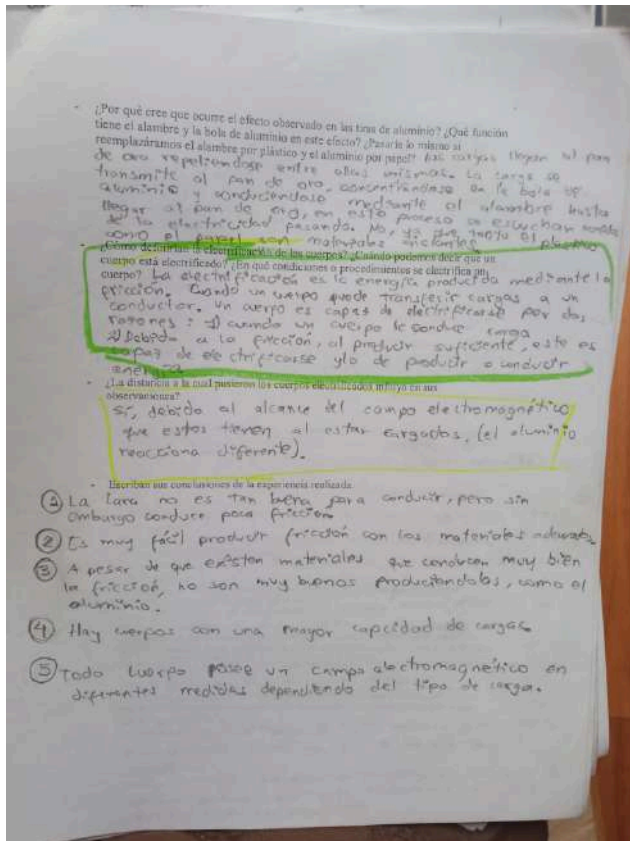 ¿Por qué cree que ocurre el efecto observado en las tiras de aluminio? ¿Qué función
tiene el alambre y la bola de aluminio en este efecto? ¿Pasaría lo mismo si
reemplazáramos el alambre por plástico y el aluminio por papel? Las cargas llegan al pan
de oro repeliendose entre ellas mismas. La carga se
transmite al pan de oro, concentrándose en la bola de
aluminio y conduciéndose mediante el alambre hasta
llegar al pan de oro, en este proceso se escuchan
de la electricidad pasando. No, ya que tanto el plastico
como el papel son materiales aislantes
¿Cómo definirían la electrificación de los cuerpos? ¿Cuándo podemos decir que un
cuerpo está electrificado? ¿En qué condiciones o procedimientos se electrifica un
cuerpo? La electrificación es la energía producida mediante la
fricción. Cuando un cuerpo puede transferir cargas a un
conductor. Un cuerpo es capas de electrificarse por dos
razones: 1) cuando un cuerpo le conduce carga
2) Debido a la fricción, al producir suficiente, este es
capaz de electrificarse y/o de producir o conducir
energía
¿La distancia a la cual pusieron los cuerpos electrificados influyo en sus
observaciones?
Sí, debido al alcance del campo electromagnético
que estos tienen al estar cargados, (el aluminio
reacciona diferente).
Escriban sus conclusiones de la experiencia realizada
① La lana no es tan buena para conducir, pero sin
embargo conduce poca fricción
② Es muy fácil producir fricción con los materiales adecuados
③ A pesar de que existen materiales que conducen muy bien
la fricción, no son muy buenos produciendolos, como el
aluminio.
④ Hay cuerpos con una mayor capcidad de cargas
⑤ Todo cuerpo posee un campo electromagnético en
diferentes medidas dependiendo del tipo de carga.